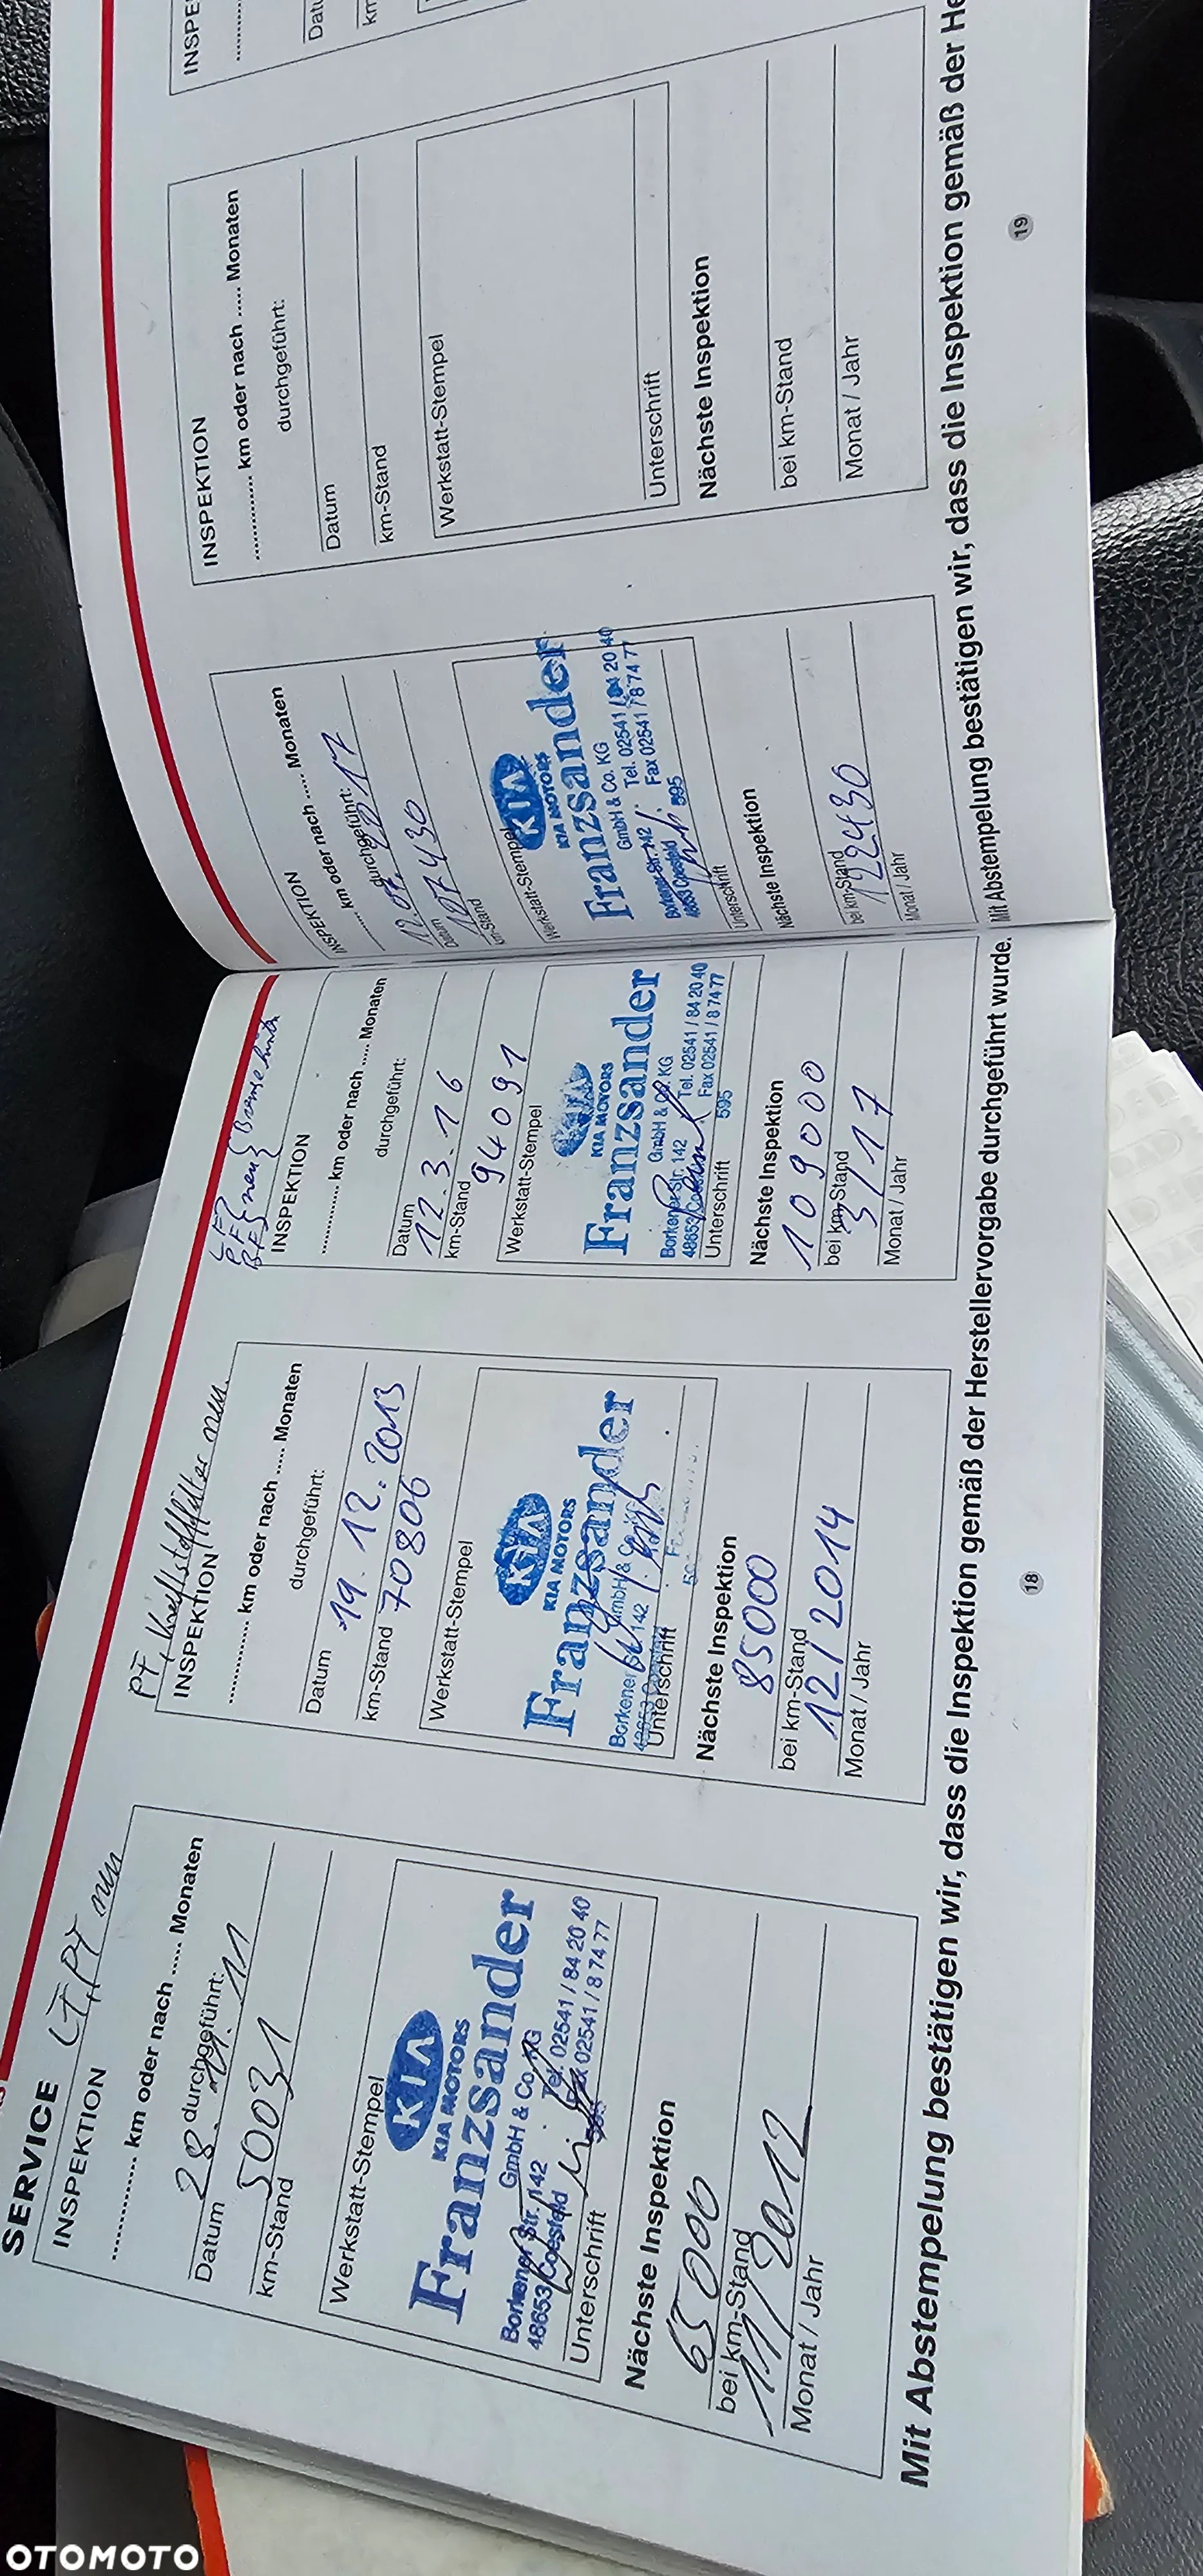 SERVICE
LF, PF neu
INSPEKTION
............ km oder nach ..... Monaten
durchgeführt:
28. 11. 11
Datum
50031
km-Stand
Werkstatt-Stempel
KIA
KIA MOTORS
Franzsander
GmbH & Co. KG
Borkener Str. 142 Tel. 02541 / 84 20 40
48653 Coesfeld Fax 02541 / 8 74 77
595
Unterschrift
Nächste Inspektion
65000
bei km-Stand
11/2012
Monat / Jahr
PF, Kraftstofffilter neu.
INSPEKTION
............ km oder nach ..... Monaten
durchgeführt:
Datum 19. 12. 2013
km-Stand 70806
Werkstatt-Stempel
KIA
KIA MOTORS
Franzsander
GmbH & Co.
Borkener Str. 142
48653 Coesfeld
Unterschrift
Nächste Inspektion
85000
bei km-Stand
12/2014
Monat / Jahr
neu
INSPEKTION
............ km oder nach ..... Monaten
durchgeführt:
Datum
12.3.16
km-Stand
94091
Werkstatt-Stempel
KIA
KIA MOTORS
Franzsander
GmbH & Co. KG
Borkener Str. 142 Tel. 02541 / 84 20 40
48653 Coesfeld Fax 02541 / 8 74 77
595
Unterschrift
Nächste Inspektion
109000
bei km-Stand
3/17
Monat / Jahr
Mit Abstempelung bestätigen wir, dass die Inspektion gemäß der Herstellervorgabe durchgeführt wurde.
18
INSPEKTION
..... km oder nach ..... Monaten
durchgeführt:
Datum
107430
km-Stand
Werkstatt-Stempel
KIA
KIA MOTORS
Franzsander
GmbH & Co. KG
Borkener Str. 142 Tel. 02541 / 84 20 40
48653 Coesfeld Fax 02541 / 8 74 77
595
Unterschrift
Nächste Inspektion
122430
bei km-Stand
Monat / Jahr
INSPEKTION
............ km oder nach ..... Monaten
durchgeführt:
Datum
km-Stand
Werkstatt-Stempel
Unterschrift
Nächste Inspektion
bei km-Stand
Monat / Jahr
INSPE
Datu
km
Mit Abstempelung bestätigen wir, dass die Inspektion gemäß der He
19
OTOMOTO